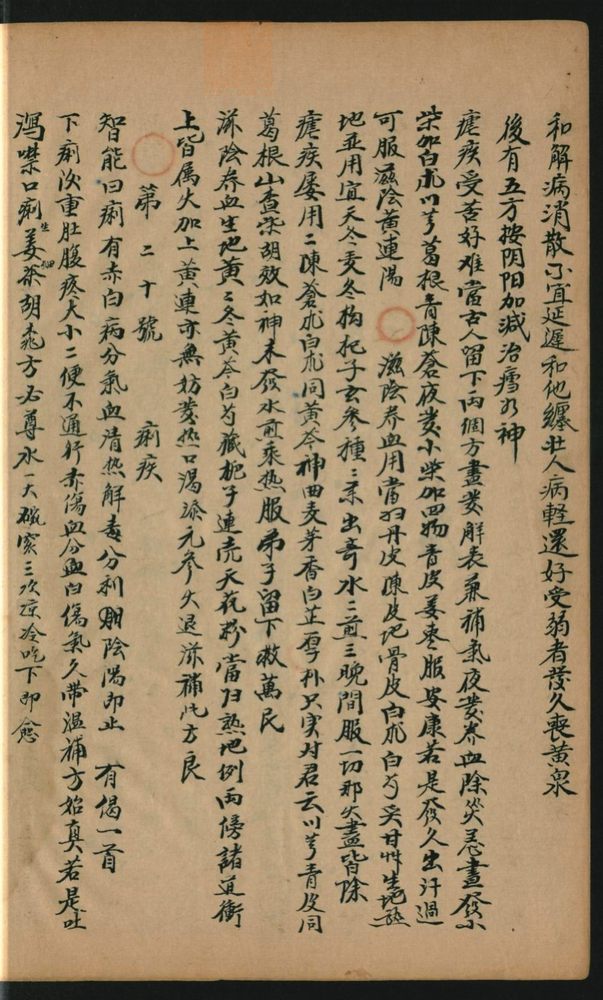 和解病消散不宜延遲和他纏壯人病軽還好受弱者發久喪黄泉
後有五方按阴阳加減治瘧如神
瘧疾受苦好难當古人留下两個方晝發解表兼補氣夜發养血除災恙晝發小
柴加白朮川芎葛根青陳蒼夜發小柴加四物青皮姜枣服安康若是發久出汗過
可服滋陰黄連湯 滋陰养血用當归丹皮陳皮地骨皮白朮白芍炙甘艸生地熟
地並用宜天冬麦冬枸杞子玄参種〻柔出奇水二煎三晚間服一切邪火盡皆除
瘧疾屡用二陳蒼朮白朮同黄芩神曲麦芽香白芷厚朴只实对君云川芎青皮同
葛根山查柴胡效如神未發水煎乘热服弟子留下救萬民
滋陰养血生地黄二冬黄芩白芍藏梔子連壳天花粉當归熟地例两傍諸道衝
上皆属火加上黄連亦無妨發热口渴添元参火退滋補此方良
第二十號 痢疾
智能曰痢有赤白病分氣血清热解毒分利陰陽即止 有偈一首
下痢次重肚腹疼大小二便不通行赤傷血分白傷氣久帶温補方始真若是吐
瀉噤口痢姜茶胡桃方必尊水一大碗煎三次凉冷吃下即愈